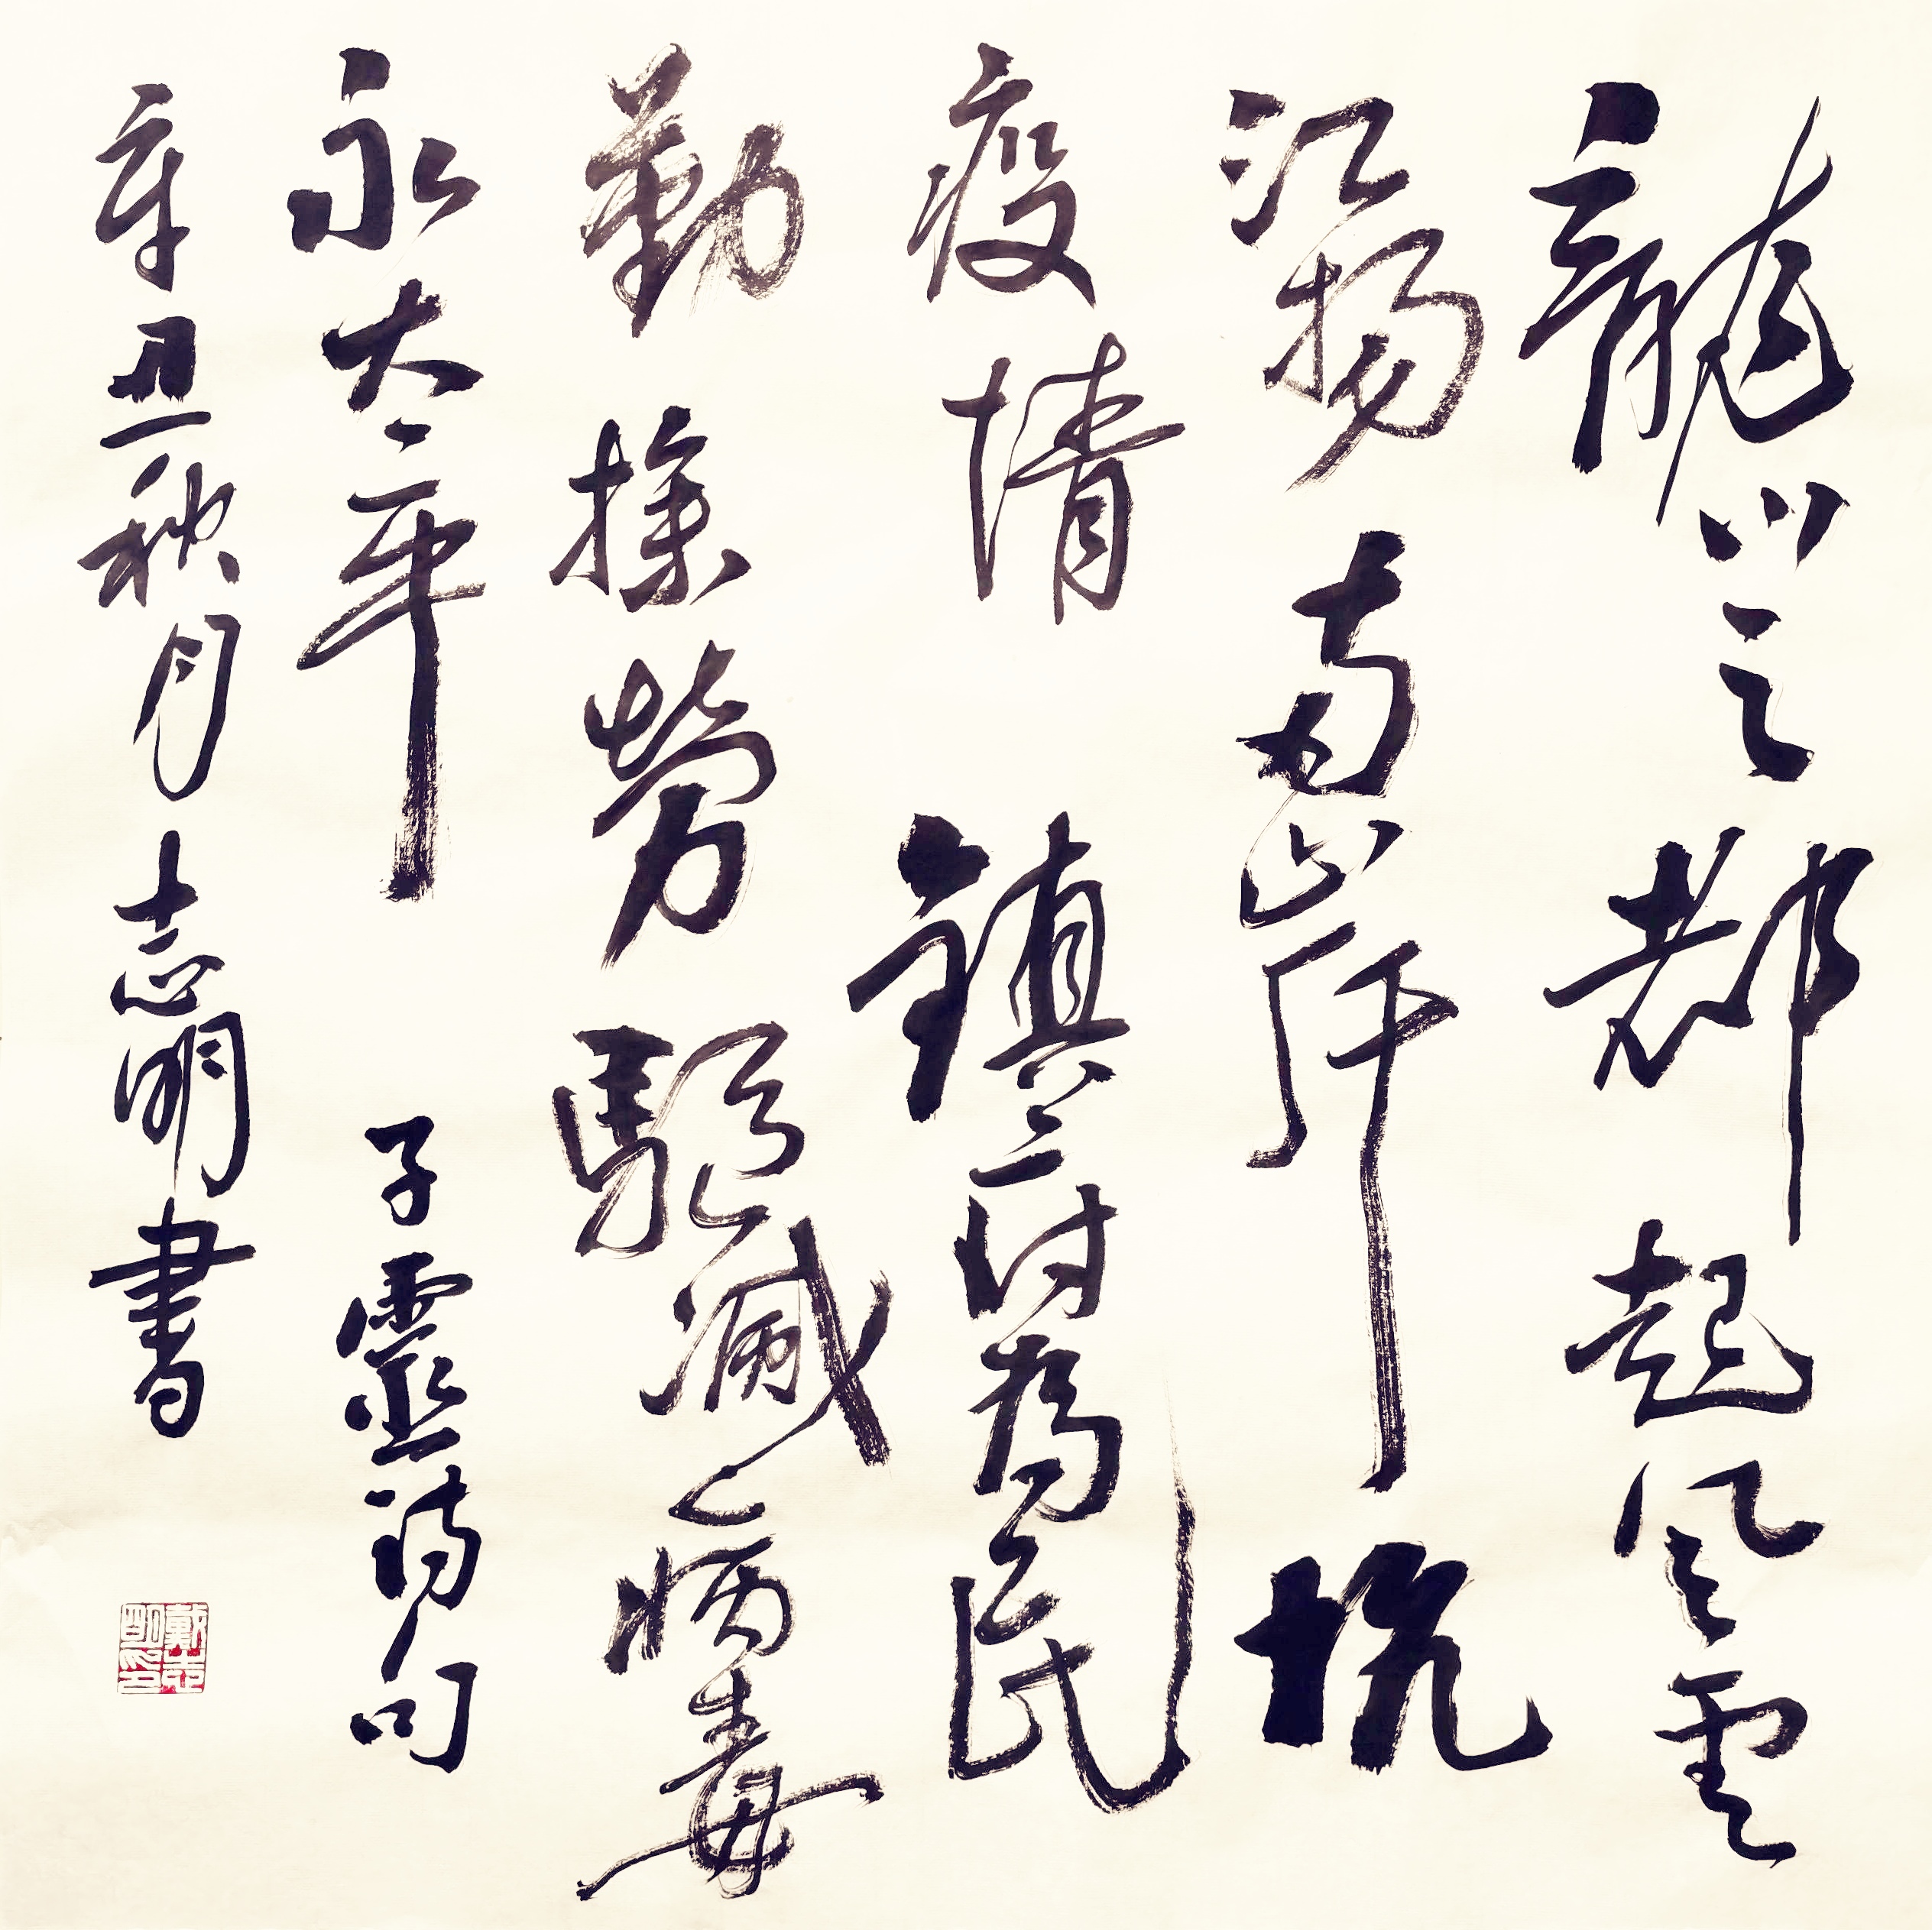 龍川之都起风雲
江揚两岸抗
疫情鎮府為民
勤操勞驅滅病毒
永太平 子靈詩句
辛丑秋月志明書
戴志明印